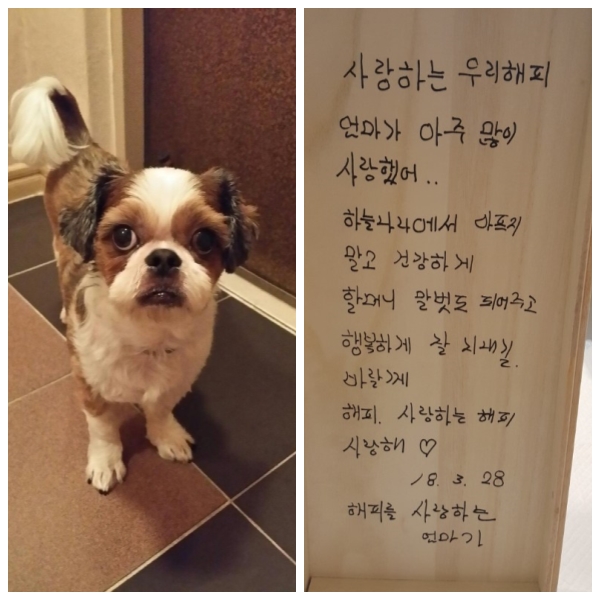 사랑하는 우리해피
언마가 아주 많이
사랑했어..
하늘나라에서 아프지
말고 건강하게
할머니 말벗도 되어주고
행복하게 잘 지내길.
바랄게
해피. 사랑하는 해피
사랑해 ♡
18. 3. 28
해피를 사랑하는
언마가